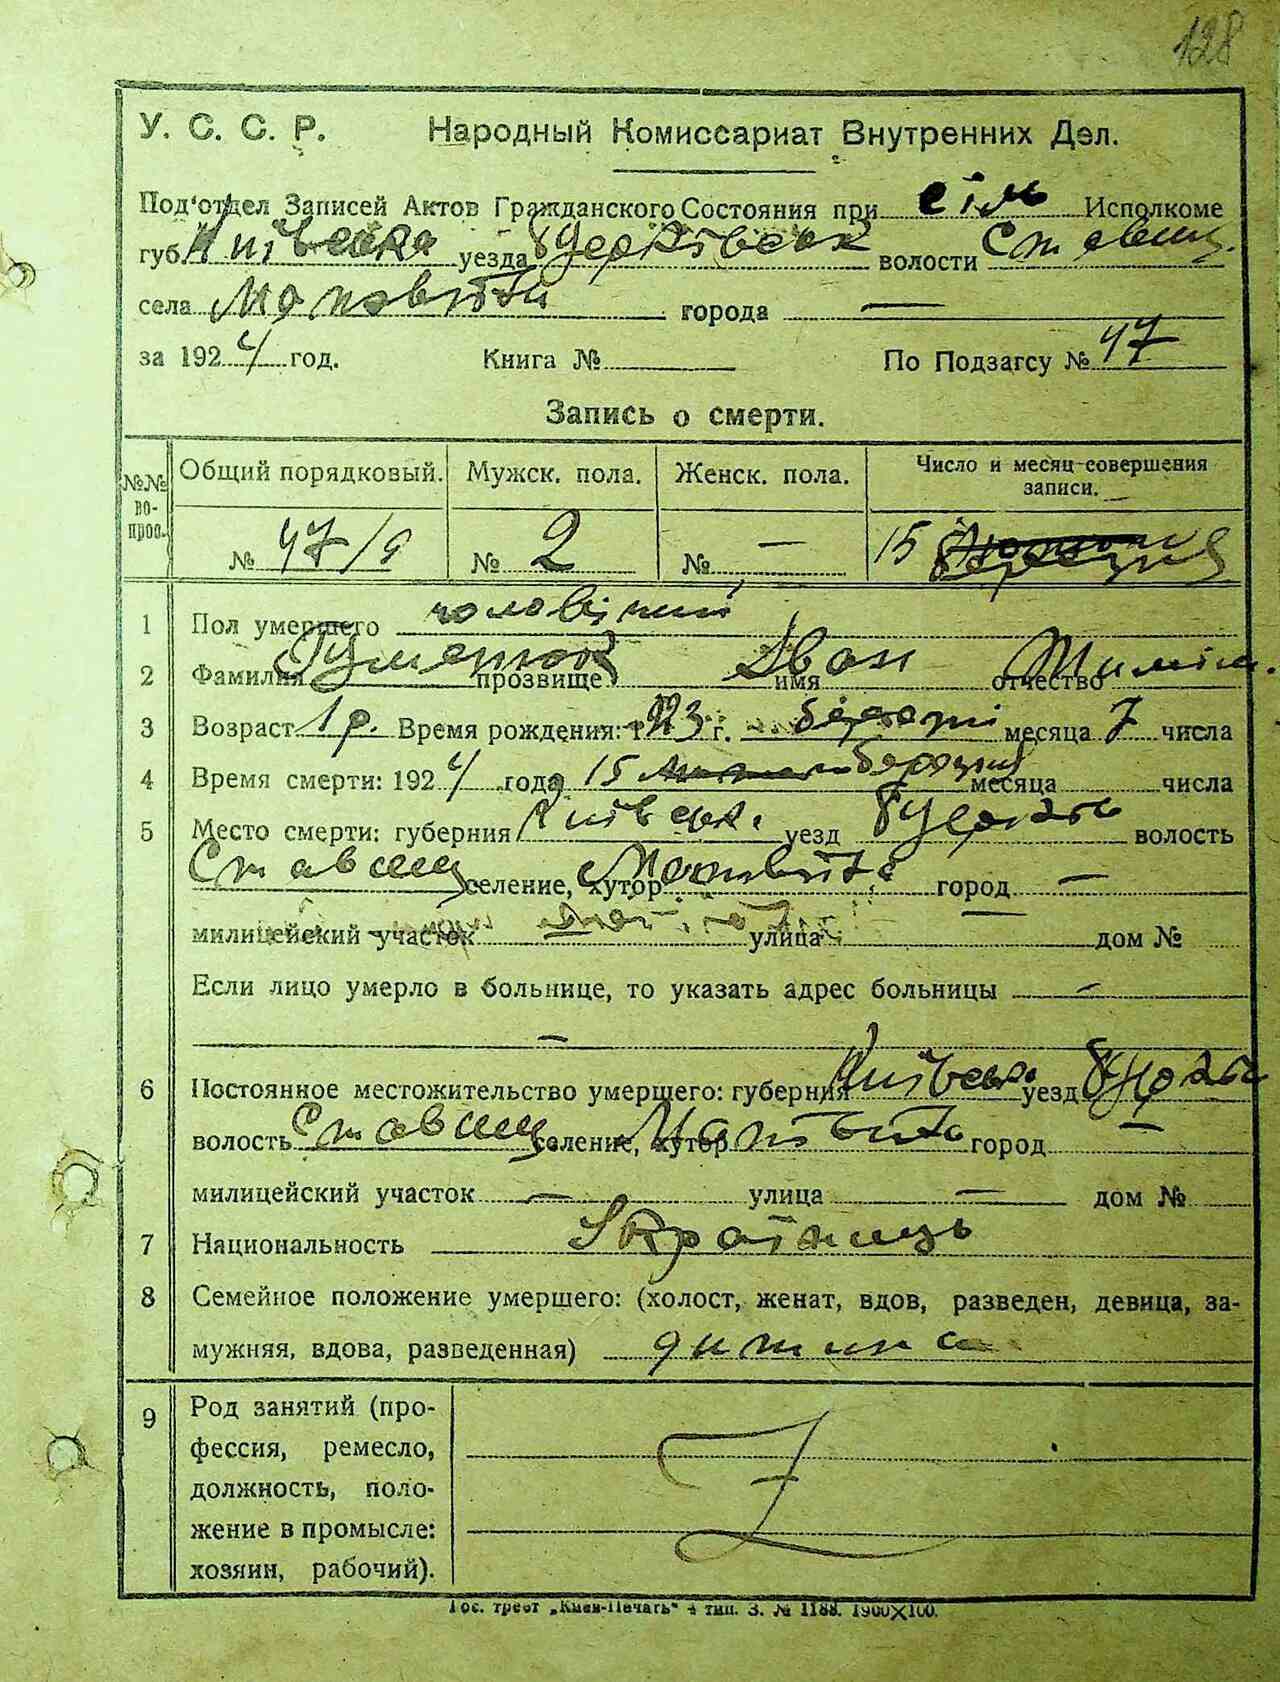 128
У. С. С. Р. Народный Комиссариат Внутренних Дел.
Под'отдел Записей Актов Гражданского Состояния при сіль Исполкоме
губ. Київська уезда волости Ставищ.
села города —
за 1924 год. Книга № По Подзагсу № 47
Запись о смерти.
№№ вопрос. Общий порядковый. Мужск. пола. Женск. пола. Число и месяц совершения записи.
№ 47/ № 2 № — 15
1 Пол умершего чоловічий
2 Фамилия прозвище Іван имя отчество
3 Возраст 1 р. Время рождения: 1923 г. месяца 7 числа
4 Время смерти: 1924 года 15 месяца числа
5 Место смерти: губерния Київськ. уезд волость
Ставищ селение, хутор город —
милицейский участок — улица — дом №
Если лицо умерло в больнице, то указать адрес больницы —
—
6 Постоянное местожительство умершего: губерния Київська уезд
волость Ставищ селение, хутор город —
милицейский участок — улица — дом №
7 Национальность Українець
8 Семейное положение умершего: (холост, женат, вдов, разведен, девица, за-
мужняя, вдова, разведенная) дитина
9 Род занятий (про-
фессия, ремесло,
должность, поло-
жение в промысле:
хозяин, рабочий).
Гос. трест „Киев-Печать“ 4 тип. З. № 1188. 1900×100.